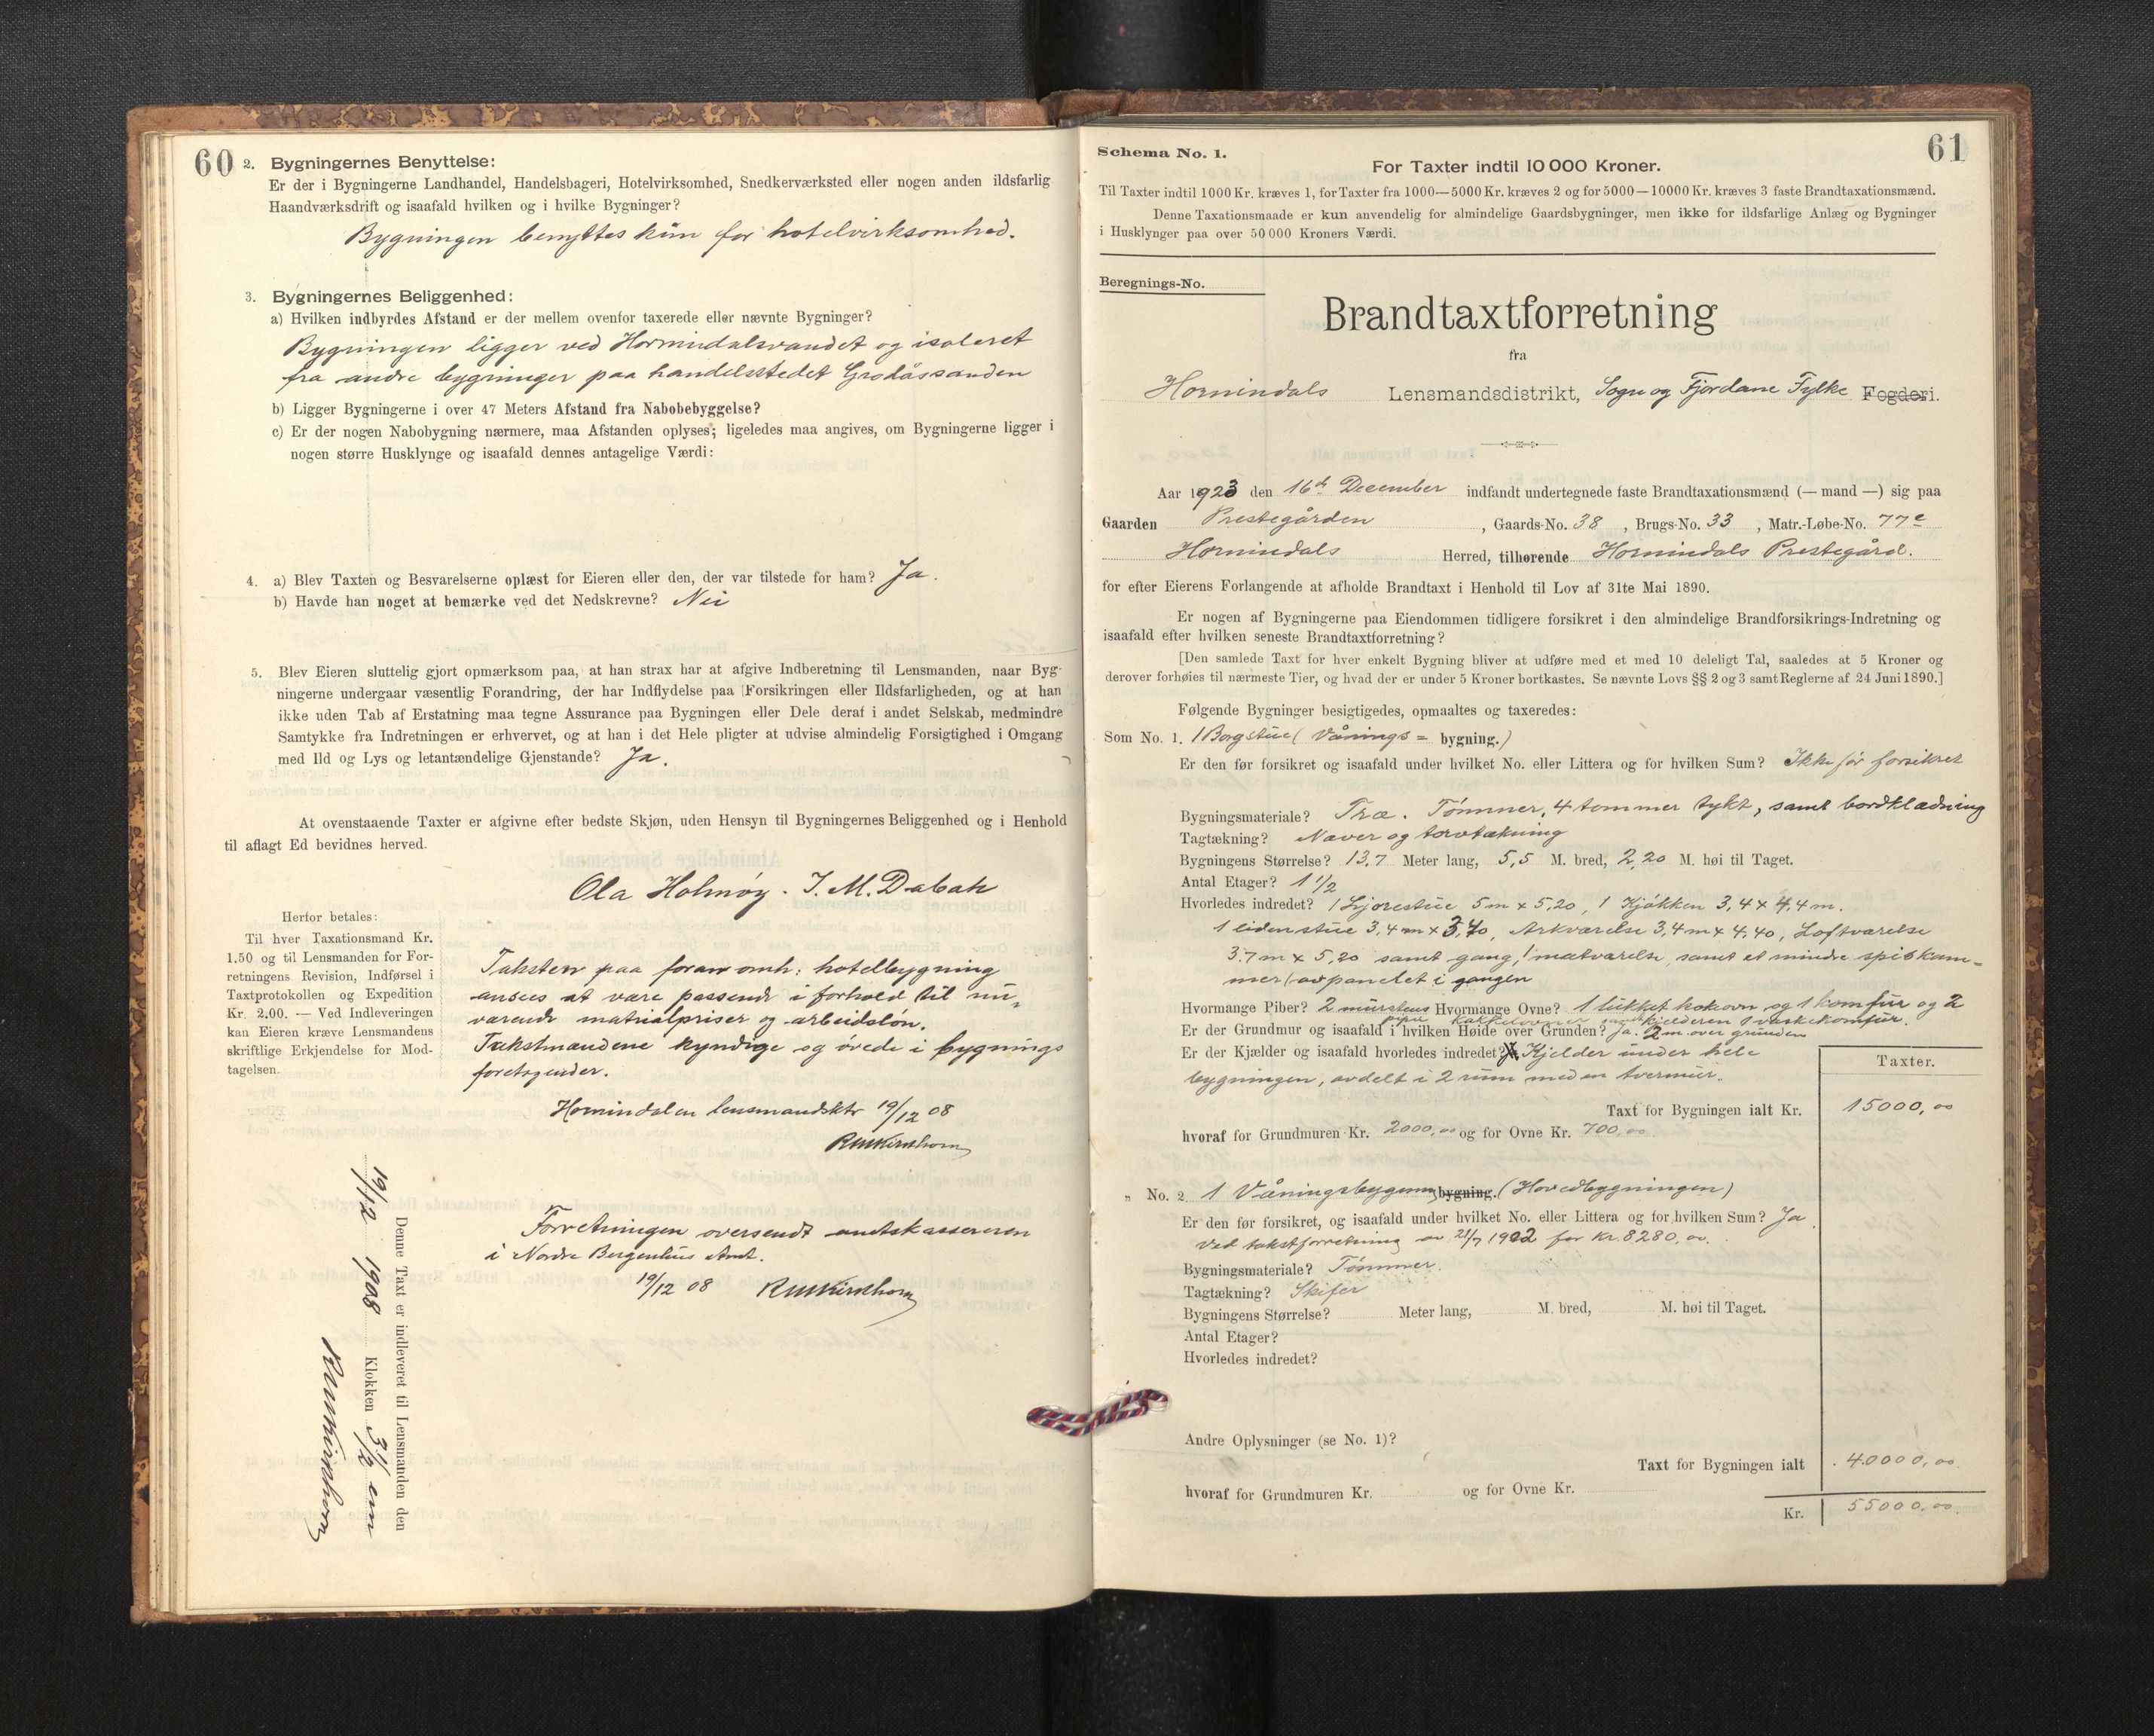 60
2. Bygningernes Benyttelse:
Er der i Bygningerne Landhandel, Handelsbageri, Hotelvirksomhed, Snedkerværksted eller nogen anden ildsfarlig
Haandværksdrift og isaafald hvilken og i hvilke Bygninger?
Bygningen benyttes kun for hotelvirksomhed.
3. Bygningernes Beliggenhed:
a) Hvilken indbyrdes Afstand er der mellem ovenfor taxerede eller nævnte Bygninger?
Bygningen ligger ved Hornindalsvandet og isoleret
fra andre bygninger paa handelsstedet Grodåssanden
b) Ligger Bygningerne i over 47 Meters Afstand fra Nabobebyggelse?
c) Er der nogen Nabobygning nærmere, maa Afstanden oplyses; ligeledes maa angives, om Bygningerne ligger i
nogen større Husklynge og isaafald dennes antagelige Værdi:
4. a) Blev Taxten og Besvarelserne oplæst for Eieren eller den, der var tilstede for ham? Ja.
b) Havde han noget at bemærke ved det Nedskrevne? Nei
5. Blev Eieren sluttelig gjort opmærksom paa, at han strax har at afgive Indberetning til Lensmanden, naar Byg-
ningerne undergaar væsentlig Forandring, der har Indflydelse paa Forsikringen eller Ildsfarligheden, og at han
ikke uden Tab af Erstatning maa tegne Assurance paa Bygningen eller Dele deraf i andet Selskab, medmindre
Samtykke fra Indretningen er erhvervet, og at han i det Hele pligter at udvise almindelig Forsigtighed i Omgang
med Ild og Lys og letantændelige Gjenstande? Ja.
At ovenstaaende Taxter er afgivne efter bedste Skjøn, uden Hensyn til Bygningernes Beliggenhed og i Henhold
til aflagt Ed bevidnes herved.
Ola Holmøy. I. M.
Herfor betales:
Til hver Taxationsmand Kr.
1.50 og til Lensmanden for For-
retningens Revision, Indførsel i
Taxtprotokollen og Expedition
Kr. 2.00. — Ved Indleveringen
kan Eieren kræve Lensmandens
skriftlige Erkjendelse for Mod-
tagelsen.
Taksten paa foran omh: hotelbygning
ansees at være passende i forhold til nu-
værende matrialpriser og arbeidsløn.
Takstmændene kyndige og øvede i bygnings
foretagender.
Hornindalen lensmandsktr 19/12 08
Forretningen oversendt amtskassereren
i Nordre Bergenhus Amt.
19/12 08
Denne Taxt er indleveret til Lensmanden den
19/12 1908 Klokken 3 1/2 em
61
Schema No. 1.
For Taxter indtil 10 000 Kroner.
Til Taxter indtil 1000 Kr. kræves 1, for Taxter fra 1000—5000 Kr. kræves 2 og for 5000—10000 Kr. kræves 3 faste Brandtaxationsmænd.
Denne Taxationsmaade er kun anvendelig for almindelige Gaardsbygninger, men ikke for ildsfarlige Anlæg og Bygninger
i Husklynger paa over 50 000 Kroners Værdi.
Beregnings-No.
Brandtaxtforretning
fra
Hornindals Lensmandsdistrikt, Sogn og Fjordane Fylke Fogderi.
Aar 1923 den 16de December indfandt undertegnede faste Brandtaxationsmænd (— mand —) sig paa
Gaarden Prestegården, Gaards-No. 38, Brugs-No. 33, Matr.-Løbe-No. 77c
Hornindals Herred, tilhørende Hornindals Prestegård.
for efter Eierens Forlangende at afholde Brandtaxt i Henhold til Lov af 31te Mai 1890.
Er nogen af Bygningerne paa Eiendommen tidligere forsikret i den almindelige Brandforsikrings-Indretning og
isaafald efter hvilken seneste Brandtaxtforretning?
[Den samlede Taxt for hver enkelt Bygning bliver at udføre med et med 10 deleligt Tal, saaledes at 5 Kroner og
derover forhøies til nærmeste Tier, og hvad der er under 5 Kroner bortkastes. Se nævnte Lovs §§ 2 og 3 samt Reglerne af 24 Juni 1890.]
Følgende Bygninger besigtigedes, opmaaltes og taxeredes:
Som No. 1. 1 Borgstue (Vånings= bygning.)
Er den før forsikret og isaafald under hvilket No. eller Littera og for hvilken Sum? Ikke før forsikret
Bygningsmateriale? Træ. Tømmer, 4 tommer tykt, samt bordklædning
Tagtækning? Næver og torvtækning
Bygningens Størrelse? 13,7 Meter lang, 5,5 M. bred, 2,20 M. høi til Taget.
Antal Etager? 1 1/2
Hvorledes indredet? 1 Ljorestue 5 m x 5,20, 1 Kjøkken 3,4 x 4,4 m.
1 liden stue 3,4 m x 3,40, Arkværelse 3,4 m x 4,40, Loftværelse
3.7 m x 5,20 samt gang, 1 matværelse, samt et mindre spiskam-
mer avpanelet i gangen
Hvormange Piber? 2 murstens piper Hvormange Ovne? 1 lukket kokovn og 1 komfur og 2
kakkelovner samt i kjelderen 1 vaskekomfur.
Er der Grundmur og isaafald i hvilken Høide over Grunden? Ja. 2 m. over grunden
Er der Kjælder og isaafald hvorledes indredet? Kjelder under hele
bygningen, avdelt i 2 rum med en tvermur.
Taxter.
Taxt for Bygningen ialt Kr. 15000,00
hvoraf for Grundmuren Kr. 2000,00 og for Ovne Kr. 700,00
„ No. 2 1 Våningsbygning bygning. (Hovedbygningen)
Er den før forsikret, og isaafald under hvilket No. eller Littera og for hvilken Sum? Ja
ved takstforretning av 21/7 1902 for kr. 8280,00.
Bygningsmateriale? Tømmer.
Tagtækning? Skifer
Bygningens Størrelse? Meter lang, M. bred, M. høi til Taget.
Antal Etager?
Hvorledes indredet?
Andre Oplysninger (se No. 1)?
Taxt for Bygningen ialt 40000,00
hvoraf for Grundmuren Kr. og for Ovne Kr.
Kr. 55000,00